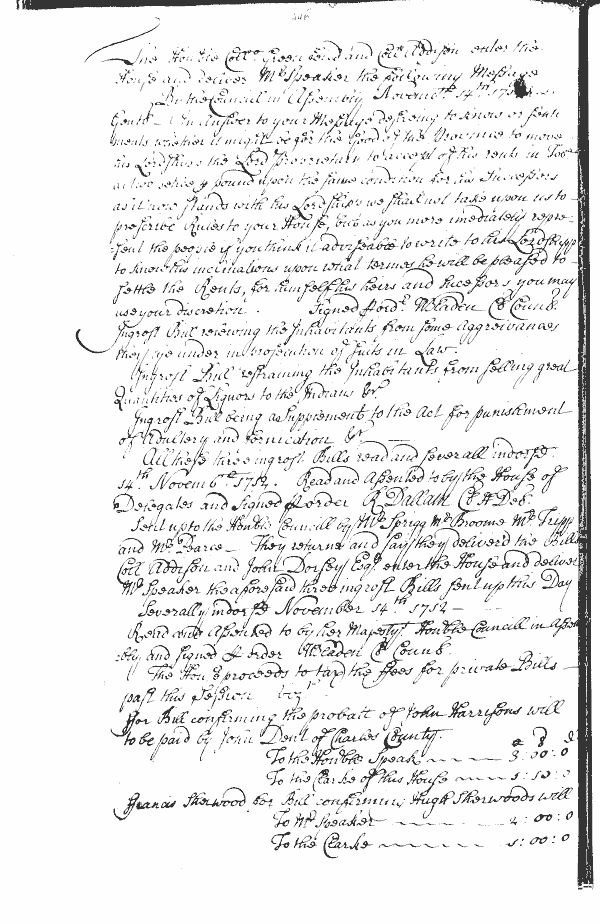 446
The Honble Collo Greenfeild and Coll Addison enter the
House and deliver Mr Speaker the following Message
By the Council in Assembly Novembr 14th 1712
Gentn In answer to your Message desireing to know or senti
ments whether it might be for the Good of the Province to move
his Lordshipp the Lord Proprietary to accept of his rents in Tobo
at two pence p pound upon the same condition for his Successors
as it now stands with his Lordshipp we shall not take upon us to
prescribe Rules to your House, but as you more imediately repre
sent the people if you think it adviseable to write to his Lordshipp
to know his inclinations upon what termes he will be pleased to
settle the Rents, for himself his heirs and successors you may
use your discretion. Signed p ordr WBladen Cl Counl.
Ingrost Bill relieving the Inhabitants from some Aggreivances
they lye under in prosecution of suits in Law.
Ingrost Bill restraining the Inhabitants from selling great
Quantities of Liquors to the Indians &c
Ingrost Bill being a Supplement to the Act for punishment
of Adultery and fornication &c
All these three ingrost Bills read and severall indorsed
14th Novembr 1712. Read and Assented to by the House of
Delegates and Signed p order R Dallam Cl H Del.
Sent up to the Honble Councill by Mr Sprigg Mr Broome Mr Tripp
and Mr Pearce They returne and say they deliverd the Bills
Coll Addison and John Dorsey Esqr enter the House and deliver
Mr Speaker the aforesaid three ingrost Bills sent up this Day
Severally indorsed November 14th 1712
Read and Assented to by her Majestys Honble Councill in Assem
bly and signed p order WBladen Cl Counl.
The House proceeds to tax the ffees for private Bills
past this Session vizt
ffor Bill confirming the probatt of John Harrisons will
to be paid by John Dent of Charles County.
To the Honble Speakr 3:00:0
To the Clarke of this House 1:10:0
ffrancis Sherwood for Bill confirming Hugh Sherwoods will
To Mr Speaker 2:00:0
To the Clarke 1:00:0